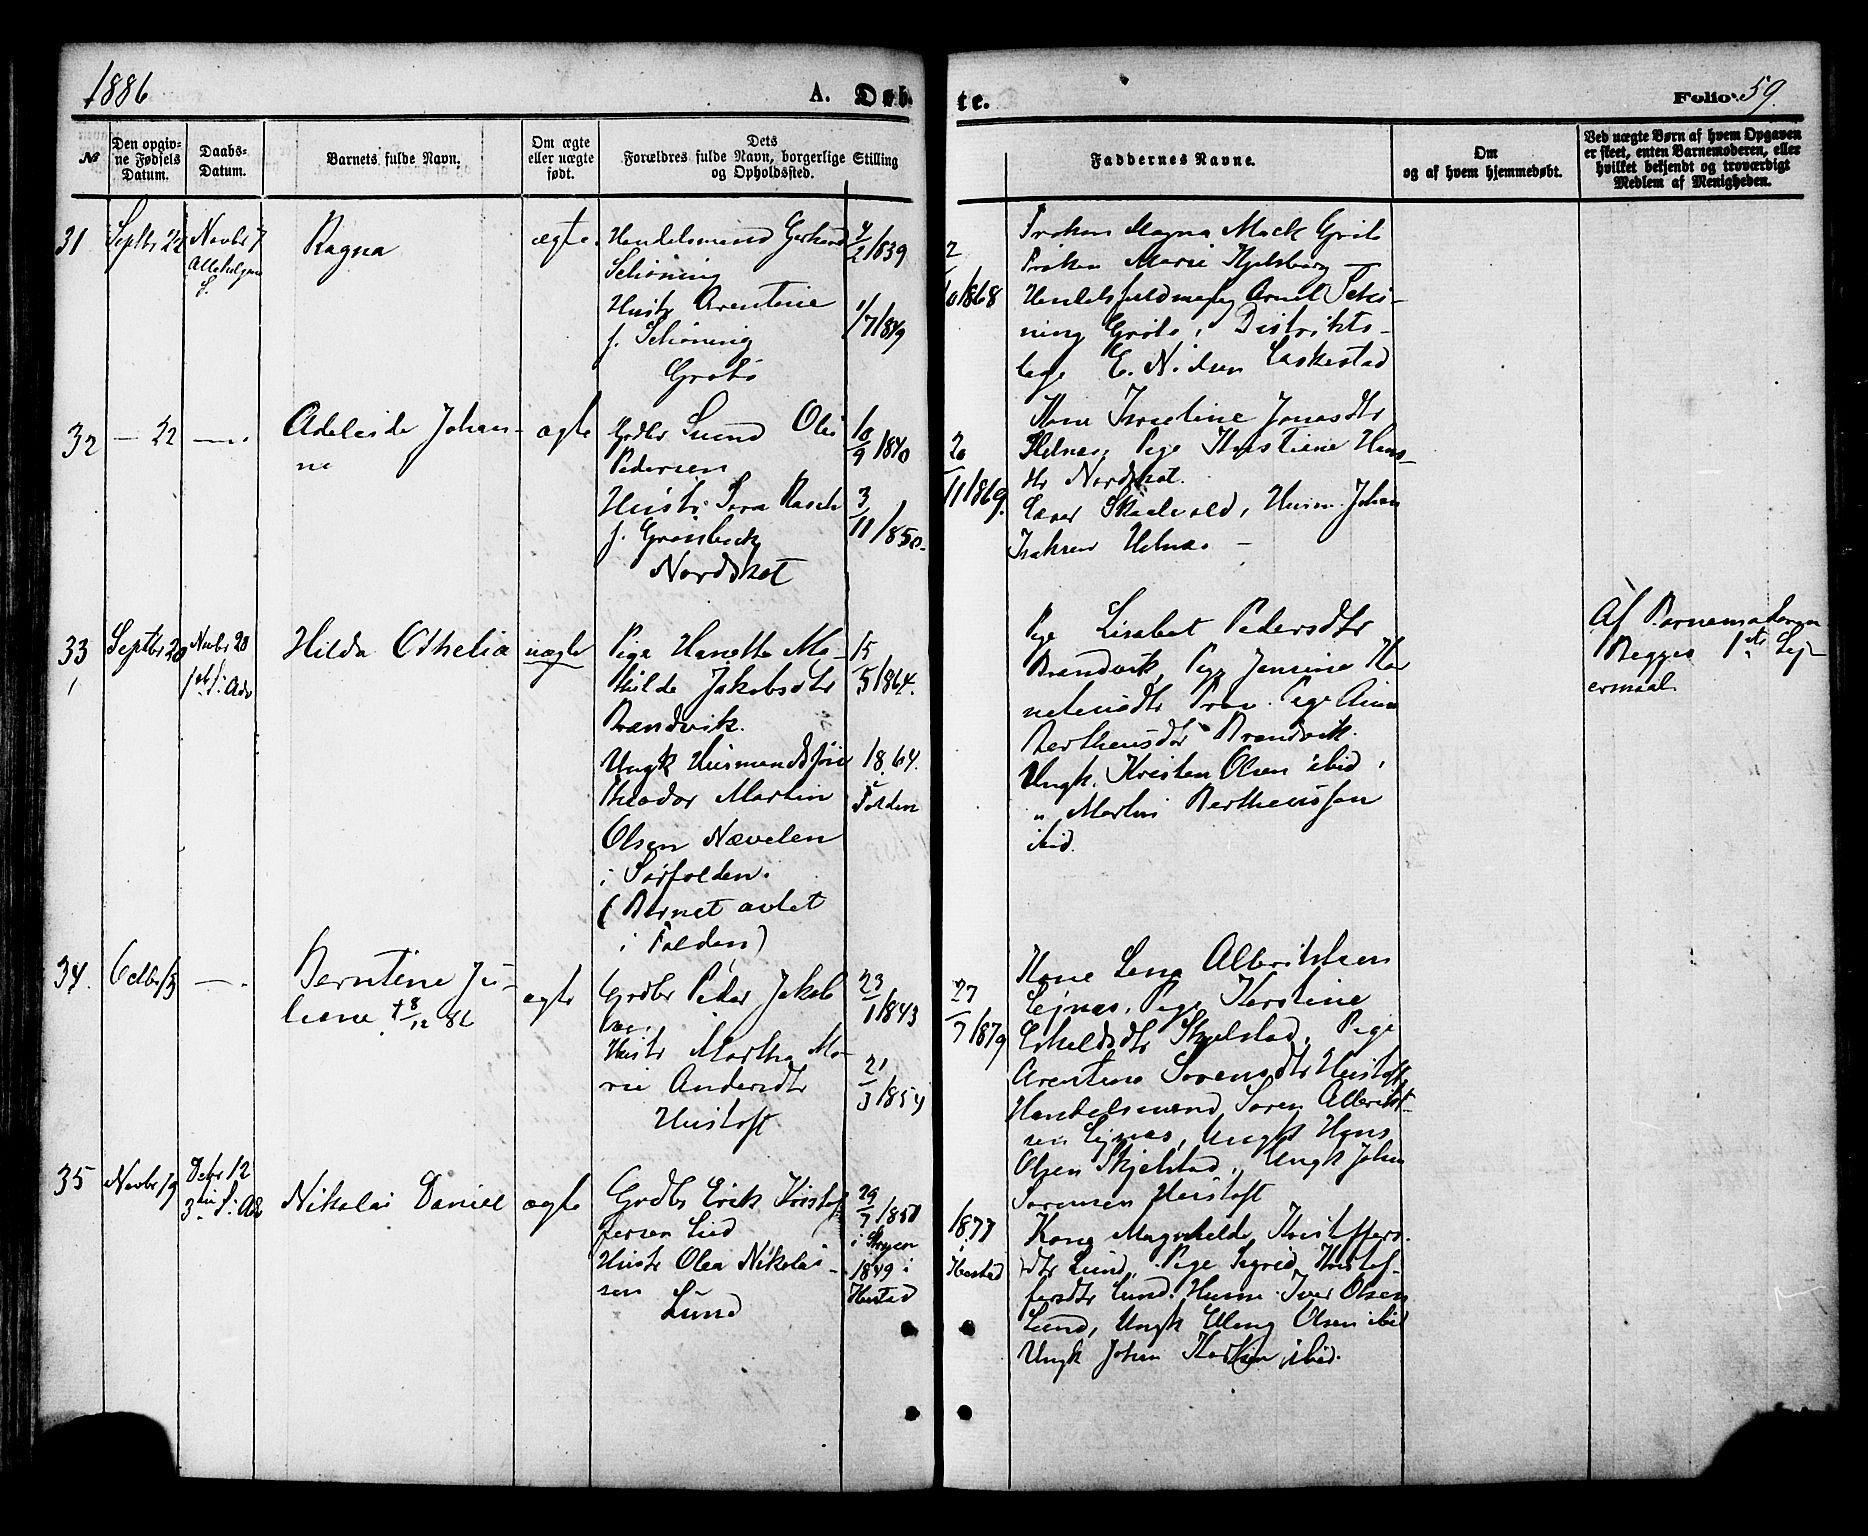 1886
A. Døb
te.
Folio 59.
№
Den opgiv-
ne Fødsels
Datum.
Daabs-
Datum.
Barnets fulde Navn.
Om ægte
eller uægte
født.
Dets
Forældres fulde Navn, borgerlige Stilling
og Opholdssted.
Faddernes Navne.
Om
og af hvem hjemmedøbt.
Ved uægte Børn af hvem Opgaven
er skeet, enten Barnemoderen, eller
hvilket bekjendt og troværdigt
Medlem af Menigheden.
31
Septbr 22
Novbr 7
Allehelgens
S.
Ragna
ægte
Handelsmand Gerhard
Schøning
Hustr Arentine
f. Schøning
Grøtø
4/2 1839
1/7 1849
2/10 1868
Frøken Magna Mack Grøtø
Frøken Marie Kjelsberg —
Handelsfuldmægtig Arnt Schø-
ning Grøtø, Distrikts-
læge E. Nissen Laskestad
32
— 22
—
Adeleide Johan-
ne
ægte
Grdbr Lund Ole
Pedersen
Hustr Sara Rasch
f. Grønbeck
Nordskot
10/9 1840
3/11 1850
20/11 1869.
Kone Israeline Jonasdtr
Helnæs, Pige Kristiane Hans-
dtr Nordskot.
Lærer Skaalvold, Husm. Johan
Isaksen Helnæs. —
33
Septbr 20
Novbr 28
1ste S. i Adv
Hilda Othelia
uægte
Pige Hanette Ma-
thilde Jakobsdtr
Brandvik.
Ungk Husmandssøn
Theodor Martin
Olsen Nævelen
i Sørfolden.
(Barnet avlet
i Folden)
15/5 1864.
1864.
i
Folden
Pige Lisabet Pedersdtr
Brandvik, Pige Jensine Ha-
Pige Anna
Bertheusdtr Brandvik.
Ungk. Kristen Olsen ibid,
" Martin Bertheussen
ibid.
Af Barnemoderen
Begges 1ste Lej-
ermaal
34.
Octbr 15
—
Berntine Ju-
liane † 8/12 86
ægte
Grdbr Peder Jakob
sen
Hustr Martha Ma-
rie Andersdtr
Hustoft
23/1 1843
21/3 1854
27/7 1879
Kone Lena Albriktsen
Lejnæs, Pige Karstine
Eskeldsdtr Skjelstad, Pige
Arentine Sørensdtr Hustoft
Handelsmand Søren Albrikt-
sen Lejnæs, Ungk Hans
Olsen Skjelstad, Ungk Johan
Sørensen Hustoft
35
Novbr 19
Decbr 12
3die S. i Adv
Nikolai Daniel
ægte
Grdbr Erik Kristof-
fersen Lund
Hustr Olea Nikolai-
sen
Lund
29/7 1851
1849 i
Ibestad
1877
i
Ibestad
Kone Magnhilda Kristoffers-
dtr Lund, Pige Sigrid Kristof-
fersdtr Lund. Husm. Iver Olsen
Lund, Ungk Olsen ibid
Ungk Johan ibid.